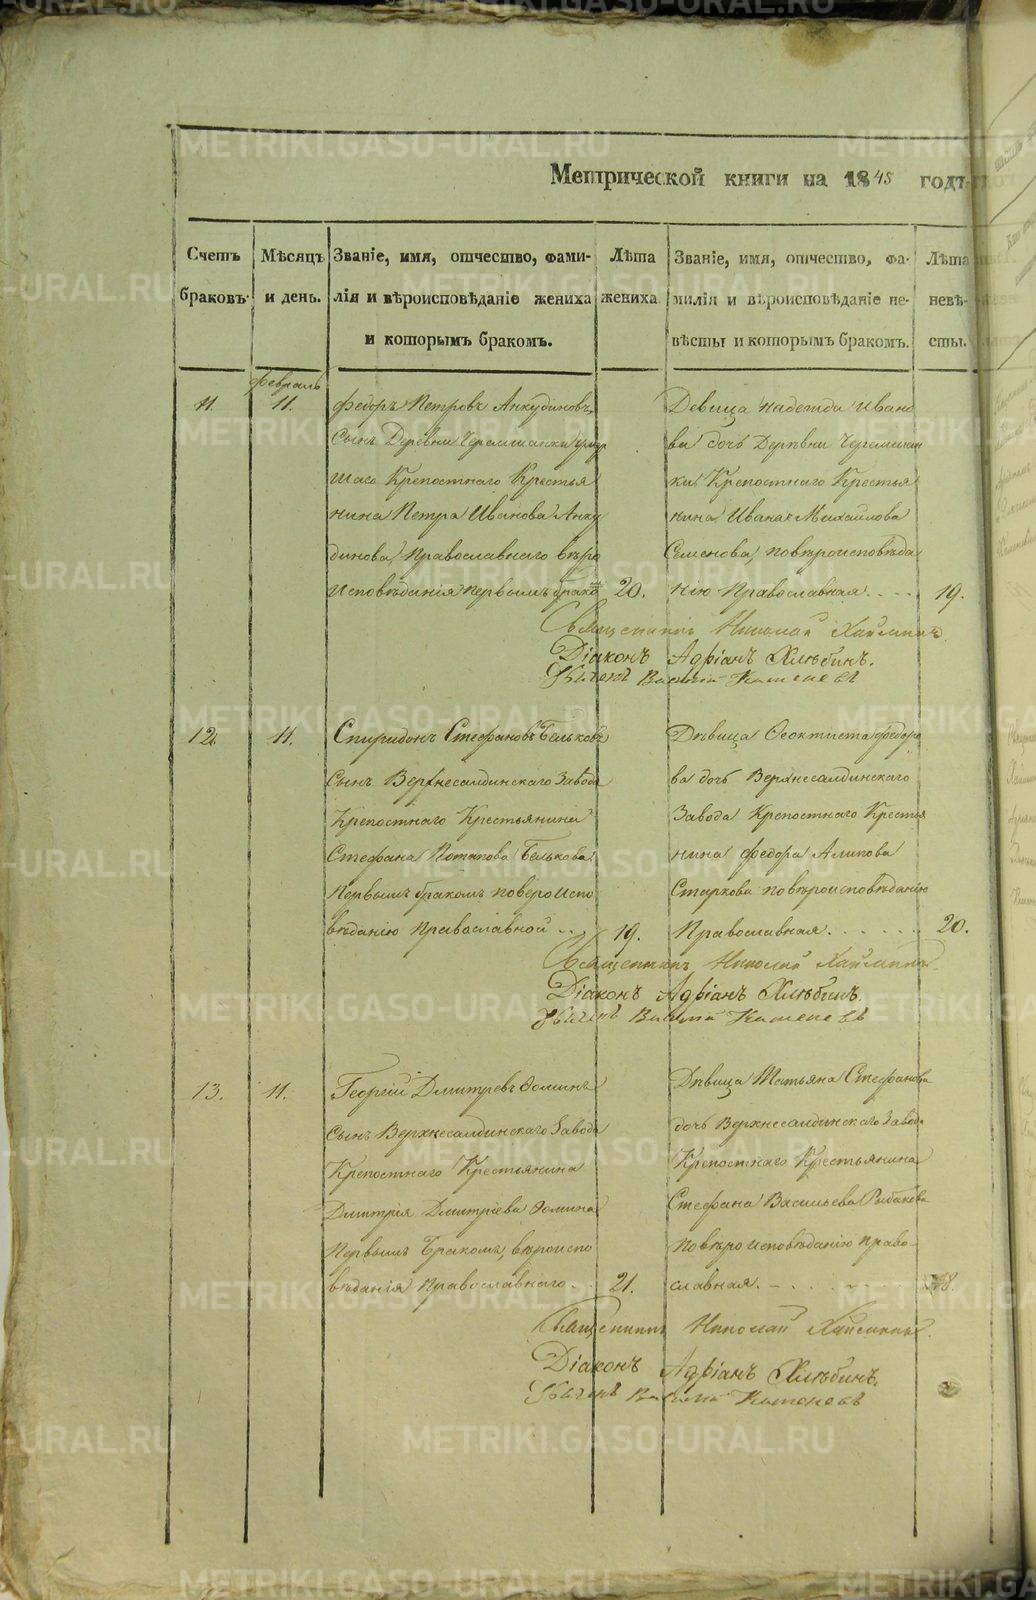 METRIKI.GASO-URAL.RU
Метрической книги на 1845 годъ
Счетъ браковъ.
Мѣсяцъ и день.
Званіе, имя, отчество, фами-
лія и вѣроисповѣданіе жениха
и которымъ бракомъ.
Лѣта жениха.
Званіе, имя, отчество, фа-
милія и вѣроисповѣданіе не-
вѣсты и которымъ бракомъ.
Лѣта невѣ-
сты.
Февраль
11. 11.
Федоръ Петровъ Анкудиновъ,
сынъ Деревни Черемшанки умер
шаго Крепостнаго Крестья
нина Петра Иванова Анку
динова, Православнаго вѣро
исповѣданія первымъ брако 20.
Девица Надежда Ивано
ва дочь Деревни Черемшан
ки Крепостнаго Крестья
нина Ивана Михайлова
Семенова, повѣроисповѣда
нію Православная. 19.
Священникъ Николай
Діаконъ Адріанъ Хлѣбинъ.
12. 11.
Спиридонъ Стефановъ Бельковъ
сынъ Верхнесалдинскаго Завода
Крепостнаго Крестьянина
Стефана Потапова Белькова
Первымъ бракомъ повѣроиспо
вѣданію Православной 19.
Дѣвица Феоктиста Федоро
ва дочь Верхнесалдинскаго
Завода Крепостнаго Крестья
нина Федора Алипова
Старкова повѣроисповѣданію
Православная. 20.
Священникъ Николай
Діаконъ Адріанъ Хлѣбинъ.
13. 11.
Георгій Дмитріевъ Фоминъ
сынъ Верхнесалдинскаго Завода
Крепостнаго Крестьянина
Дмитрія Дмитріева Фомина
Первымъ Бракомъ, вѣроиспо
вѣданія Православнаго 21.
Дѣвица Татьяна Стефанова
дочь Верхнесалдинскаго Завода
Крепостнаго Крестьянина
Стефана Васильева Рыбакова
повѣроисповѣданію право-
славная. 18.
Священникъ Николай
Діаконъ Адріанъ Хлѣбинъ.